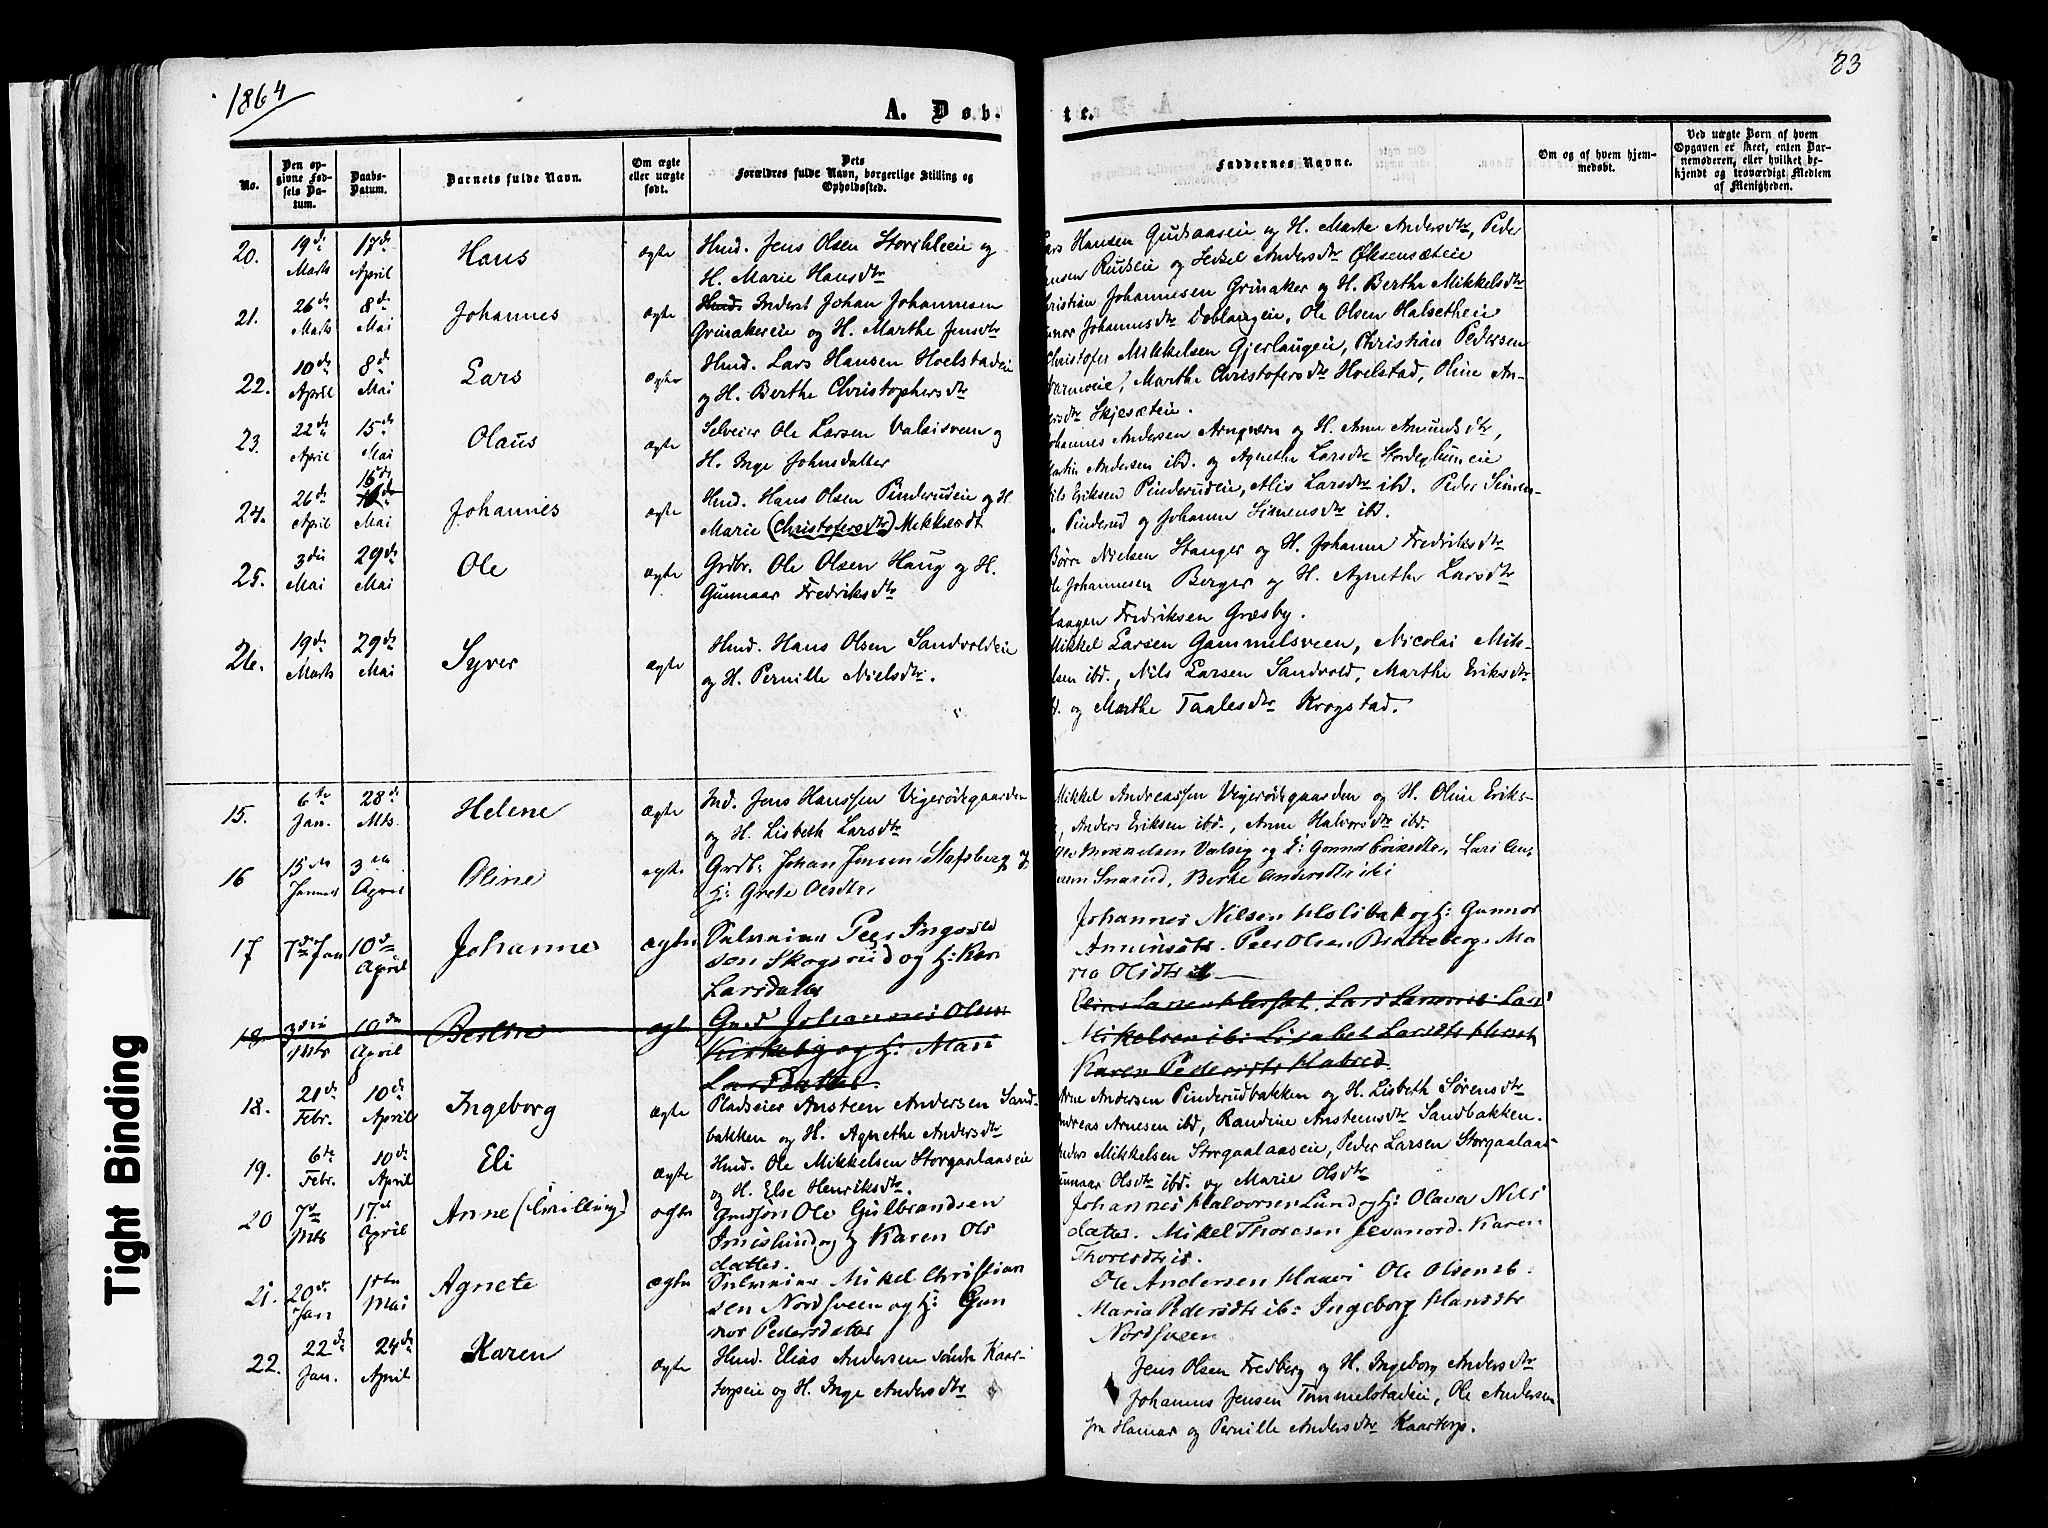 1864
83
A. Døb-
te.
No.
Den op-
givne Fød-
sels Da-
tum.
Daabs-
Datum.
Barnets fulde Navn.
Om ægte
eller uægte
født.
Dets
Forældres fulde Navn, borgerlige Stilling og
Opholdssted.
Faddernes Navne.
Om og af hvem hjem-
medøbt.
Ved uægte Børn af hvem
Opgaven er skeet, enten Bar-
nemoderen, eller hvilket be-
kjendt og troværdigt Medlem
af Menigheden.
20. 19de Marts 17de April Hans ægte Hmd. Jens Olsen og
H. Marie Hansdtr
Hansen og H. Marte Andersdtr, Peder
og Andersdtr Øksensæteie
21. 26de Marts 8de Mai Johannes ægte Hmd. Inderst Johan Johannesen
Grinakereie og H. Marthe Jensdtr
Johannesen Grinaker og H. Berthe Mikkelsdtr
Johannesdtr Ole Olsen Halsetheie
22. 10de April 8de Mai Lars ægte Hmd. Lars Hansen Hoelstadeie
og H. Berthe Christophersdtr
Christofer Mikkelsen Gjerlaugeie, Christian Pedersen
Marthe Christofersdtr Hoelstad, Oline An-
dersdtr Skjesæteie.
23. 22de April 15de Mai Olaus ægte Selveier Ole Larsen og
H. Inge Johnsdatter
Johannes Andersen Arnqværn og H. Anne Amundsdtr,
Andersen ibd. og Agnethe Larsdtr
24. 26de April 16de Mai Johannes ægte Hmd. Hans Olsen Pinderudeie og H.
Marie (Christofersdtr)
Nils Eriksen Pinderudeie, Alis Larsdtr ibd. Peder Simen-
Pinderud og Johanne Simensdtr ibd.
25. 3die Mai 29de Mai Ole ægte Grdbr. Ole Olsen Haug og H.
Gunnaar Fredriksdtr
Børre Nielsen Stanger og H. Johanne Fredriksdtr
Johannesen Berger og H. Agnethe Larsdtr
Haagen Fredriksen Græsby.
26. 19de Marts 29de Mai Syver ægte Hmd. Hans Olsen Sandvoldeie
og H. Pernille Nielsdtr.
Mikkel Larsen Gammelsveen, Nicolai Mik-
kelsen ibd., Nils Larsen Sandvold, Marthe Eriksdtr
og Marthe Taalesdtr Krogstad.
15. 6te Jan. 28de Mts. Helene ægte Ind. Jens Hanssen Vigerødegaarden
og H. Lisbeth Larsdtr
Mikkel Andreassen Vigerødegaarden og H. Oline Eriks-
Anders Eriksen ibd., Anne Halvorsdtr ibd.
16 15de Januar 3die April Oline ægte Grdbr Johan Jensen Stafsberg og
H: Grete Olsdtr
og H: Lars
17 7de Jan 10de April Johanne ægte Selveier Peer
sen Skogsrud og H: Kari
Larsdatter
Johannes Nilsen og H: Gunnor
Peer Olsen Bratteberg. Ma-
ria Olsdtr
18 3die Mts 10de April Berthe ægte Grd Johannes Olsen
Kirkeby og H: Mari
Larsdatter
Mikelsen ib: Lisabet Larsdtr
Karen Pedersdtr
18. 21de Febr. 10de April Ingeborg ægte Pladseier Ansteen Andersen Sand-
bakken og H. Agnethe Andersdtr
Arne Andersen Pinderudbakken og H. Lisbeth Sørensdtr
Andreas Arnesen ibd, Randine Ansteensdtr Sandbakken.
19. 6te Febr. 10de April Eli ægte Hmd. Ole Mikkelsen Storgaalaaseie
og H. Else Henriksdtr.
Anders Mikkelsen Storgaalaaseie, Peder Larsen Storgaalaas-
Gunnaar Olsdtr ibd. og Marie Olsdtr
20 7de Mts 17de April Anne (Tvilling) ægte Ole Gulbrandsen
og H Karen Ols
datter.
Johannes Halvorsen Lund og H: Olava Nils
datter. Mikel Thoresen Karen
Thoresdtr
21. 20de Jan 1ste Mai Agnete ægte Selveier Mikel Christian
sen Nordsveen og H: Gun
nor Pedersdatter
Ole Andersen Ole Olsen ib.
Maria Pedersdtr ib: Ingeborg Hansdtr
Nordsveen
22. 22de Jan. 24de April Karen ægte Hmd. Elias Andersen søndre Kaar-
torpseie og H. Inge Andersdtr
Jens Olsen Fredberg og H. Ingeborg Andersdtr
Johannes Jensen Tommelstadeie, Ole Andersen
fra Hamar og Pernille Andersdtr Kaartorp.
Tight Binding